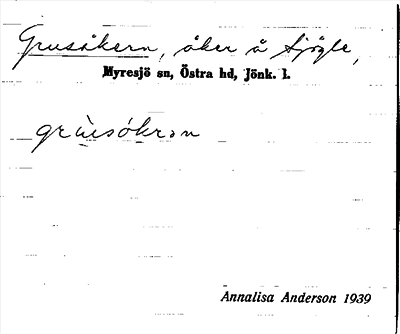 Grusåkern, åker å Sjögle,
Myresjö sn, Östra hd, Jönk. l.
grù̀sókrən
Annalisa Anderson 1939